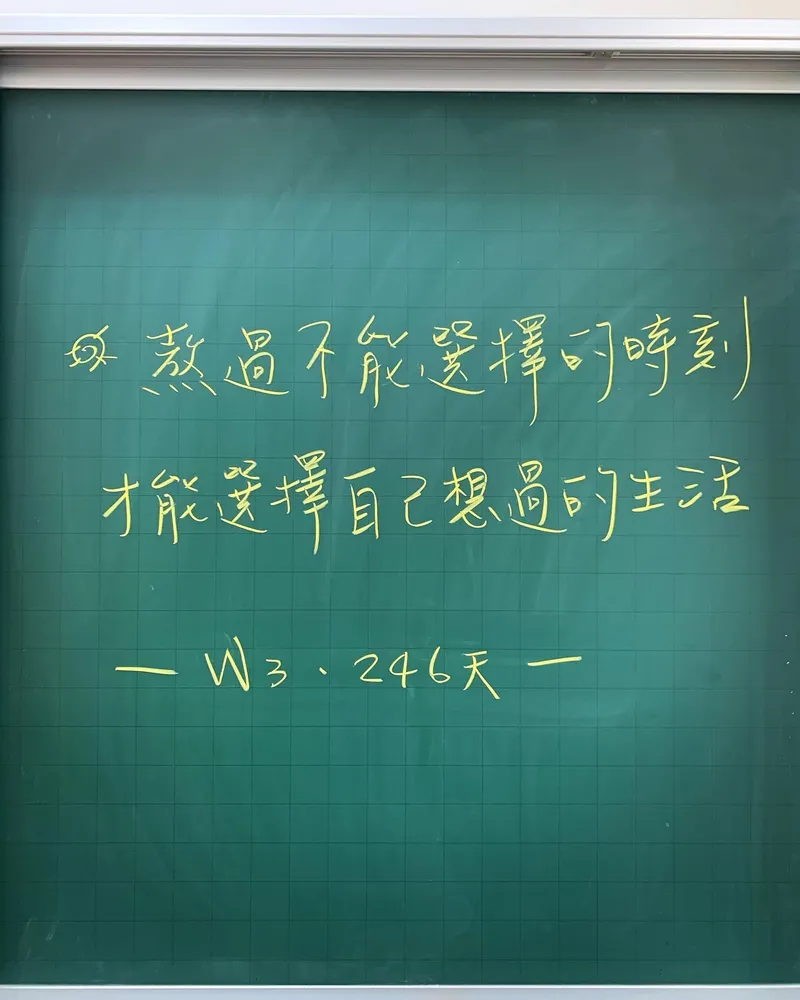 熬過不能選擇的時刻
才能選擇自己想過的生活
— W3、246天 —